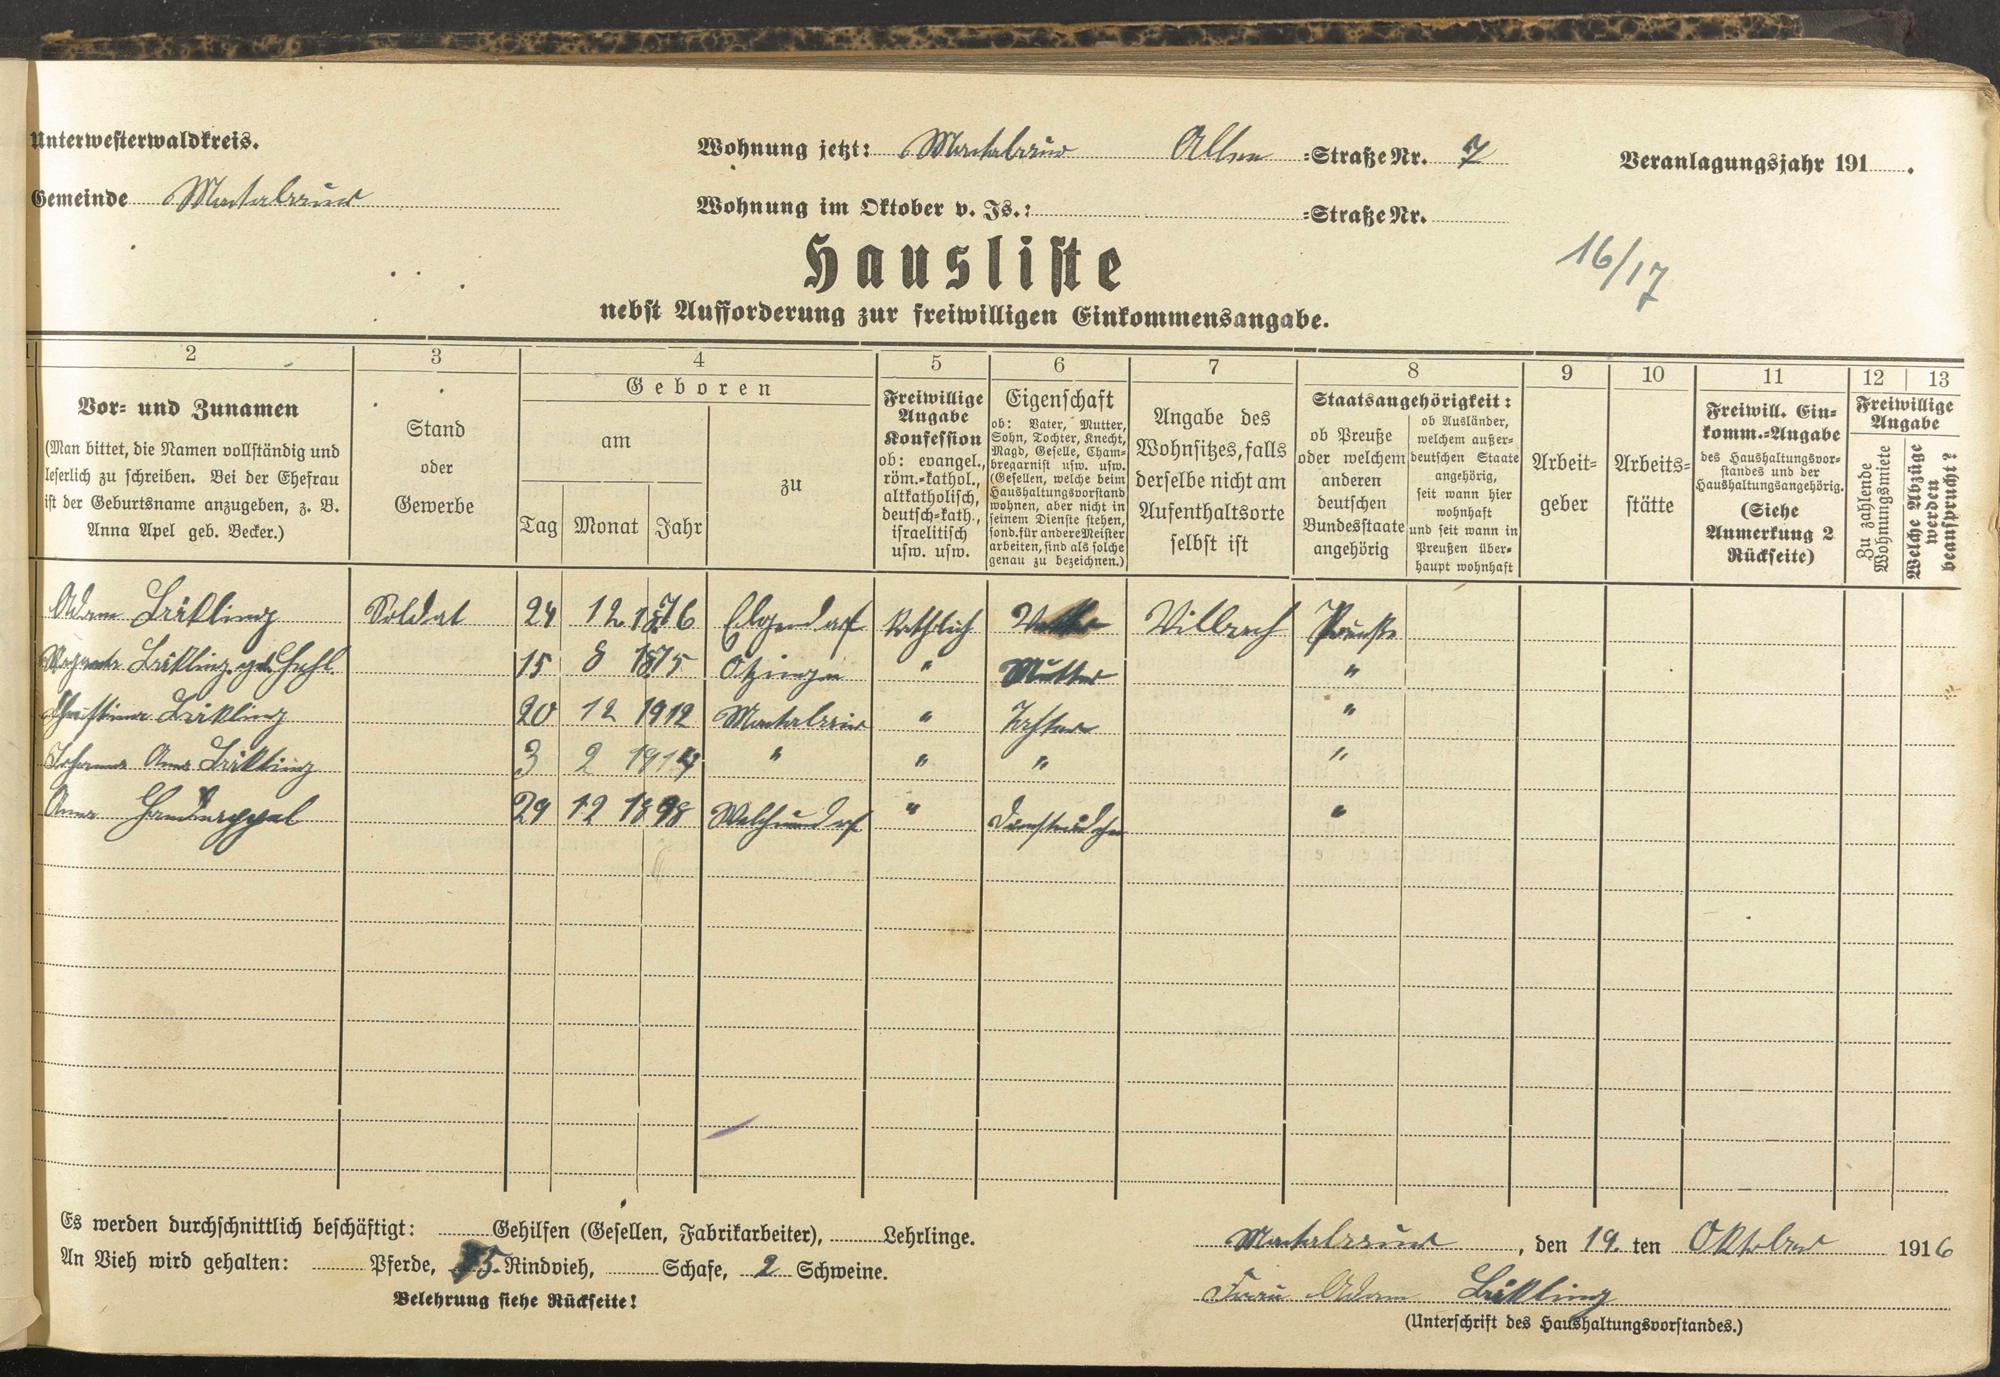 Unterwesterwaldkreis.
Wohnung jetzt: Montabaur Allee =Straße Nr. 7
Veranlagungsjahr 191 .
Gemeinde Montabaur
Wohnung im Oktober v. Js.: =Straße Nr.
16/17
Hausliste
nebst Aufforderung zur freiwilligen Einkommensangabe.
1 2 3 4 5 6 7 8 9 10 11 12 13
Vor- und Zunamen
(Man bittet, die Namen vollständig und
leserlich zu schreiben. Bei der Ehefrau
ist der Geburtsname anzugeben, z. B.
Anna Apel geb. Becker.)
Stand
oder
Gewerbe
Geboren
am
Tag Monat Jahr
zu
Freiwillige
Angabe
Konfession
ob: evangel.,
röm.-kathol.,
altkatholisch,
deutsch-kath.,
israelitisch
usw. usw.
Eigenschaft
ob: Vater, Mutter,
Sohn, Tochter, Knecht,
Magd, Geselle, Cham-
bregarnist usw. usw.
(Gesellen, welche beim
Haushaltungsvorstand
wohnen, aber nicht in
seinem Dienste stehen,
sond. für andere Meister
arbeiten, sind als solche
genau zu bezeichnen.)
Angabe des
Wohnsitzes, falls
derselbe nicht am
Aufenthaltsorte
selbst ist
Staatsangehörigkeit:
ob Preuße
oder welchem
anderen
deutschen
Bundesstaate
angehörig
ob Ausländer,
welchem außer-
deutschen Staate
angehörig,
seit wann hier
wohnhaft
und seit wann in
Preußen über-
haupt wohnhaft
Arbeit-
geber
Arbeits-
stätte
Freiwill. Ein-
komm.-Angabe
des Haushaltungsvor-
standes und der
Haushaltungsangehörig.
(Siehe
Anmerkung 2
Rückseite)
Freiwillige
Angabe
Zu zahlende
Wohnungsmiete
Welche Abzüge
werden
beansprucht?
Adam Soldat 24 12 1876 Elgendorf Kathlich Vater Preuße
15 8 1875 Ötzingen " Mutter "
20 12 1912 Montabaur " Tochter "
Johanna Anna 3 2 1914 " " " "
Anna 29 12 1898 " Dienstmädchen "
Es werden durchschnittlich beschäftigt: Gehilfen (Gesellen, Fabrikarbeiter), Lehrlinge.
An Vieh wird gehalten: Pferde, 5 Rindvieh, Schafe, 2 Schweine.
Belehrung siehe Rückseite!
Montabaur, den 19. ten Oktober 1916
Frau Adam
(Unterschrift des Haushaltungsvorstandes.)